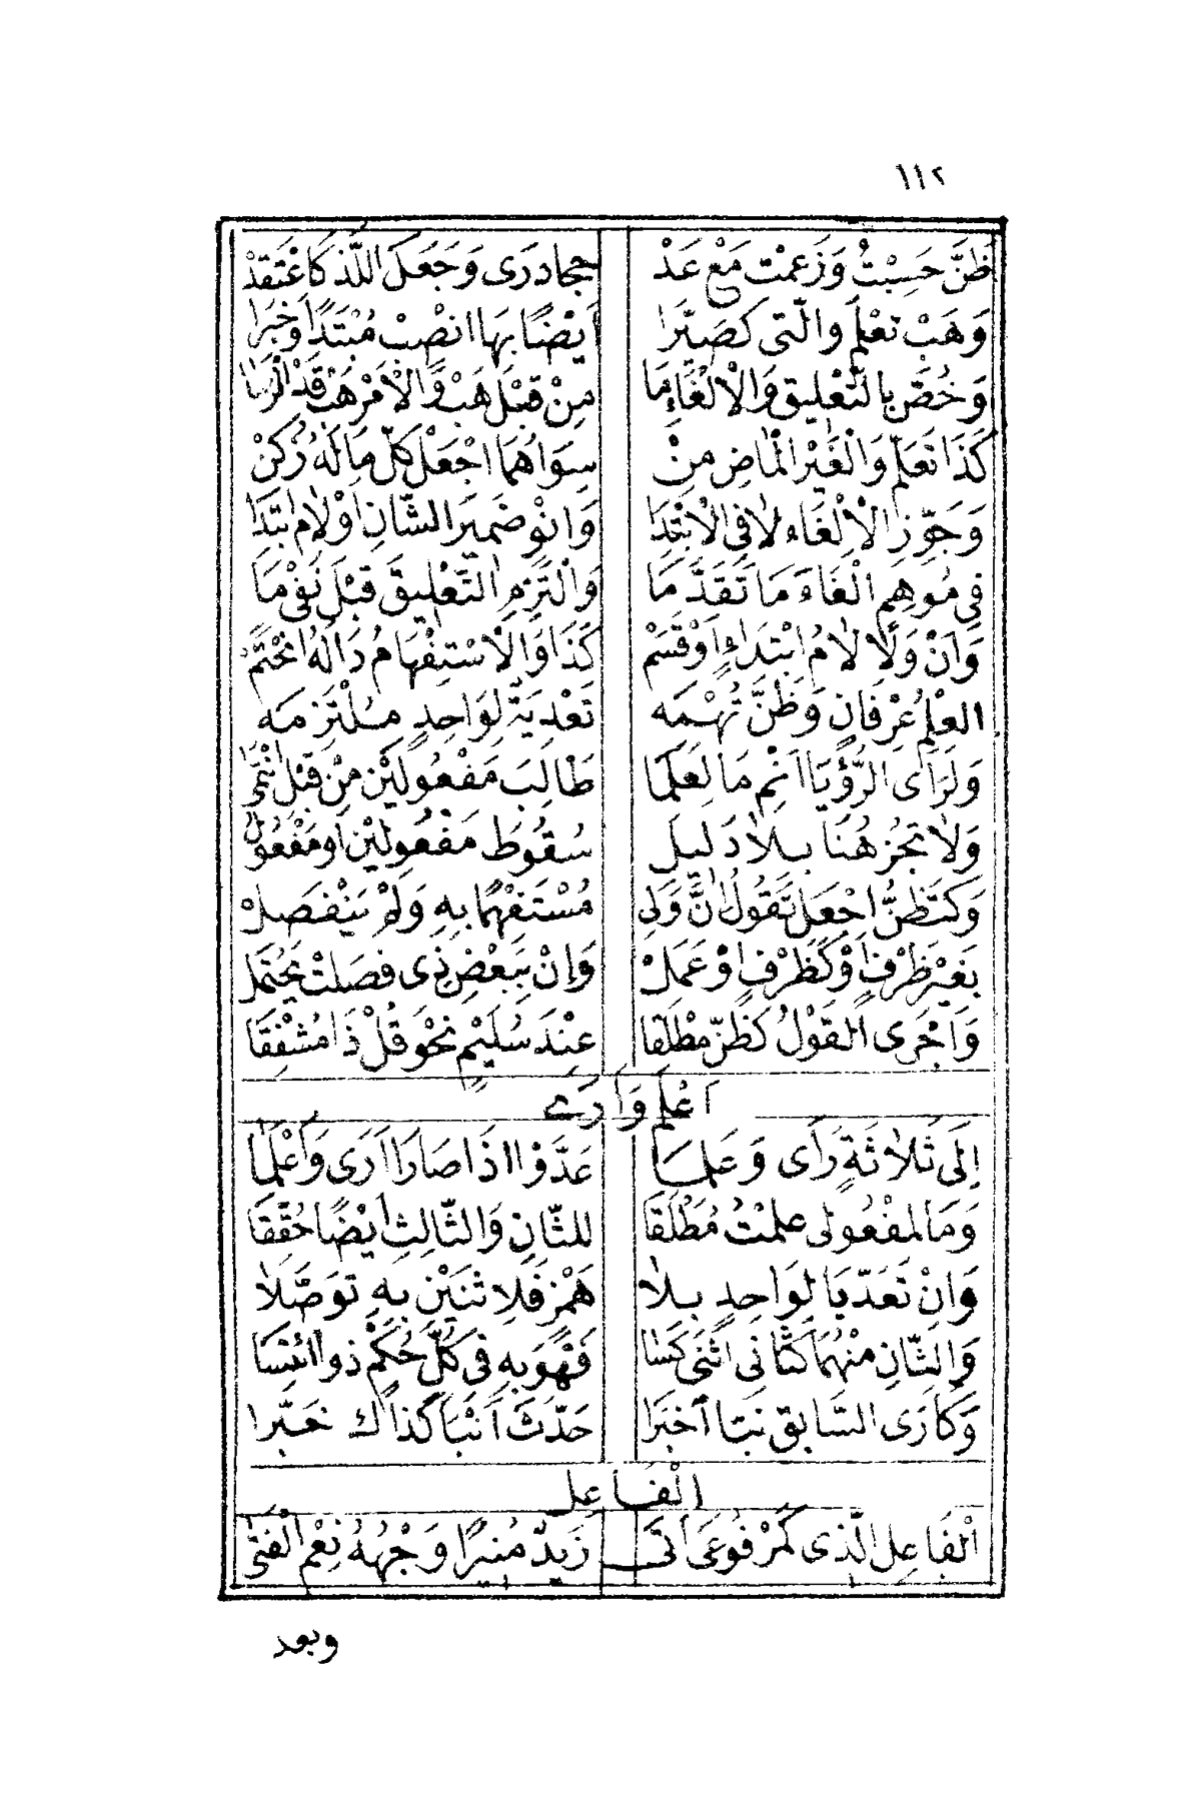 ١١٢
ظَنَّ حَسِبْتُ وَزَعَمْتُ مَعَ عَدْ حجا درى وَجَعَلَ اللَّذْ كَاعْتَقَدْ
وَهَبْ تَعَلَّمْ وَالَّتِى كَصَيَّرَا اَيْضًا بِهَا انْصِبْ مُبْتَدًا وَخَبَرَا
وَخُصَّ بِالتَّعْلِيقِ وَالْاِلْغَاءِ مَا مِنْ قَبْلِ هَبْ وَالْاَمْرَ هَبْ قَدْ اُلْزِمَا
كَذَا تَعَلَّمْ وَالْغَيْرِ الْمَاضِ مِنْ سِوَاهُمَا اجْعَلْ كُلَّ مَا لَهُ زُكِنْ
وَجَوِّزِ الْاِلْغَاءَ لَا فِى الْاِبْتِدَا وَانْوِ ضَمِيرَ الشَّانِ اَوْ لَامَ ابْتِدَا
فِى مُوهِمٍ اِلْغَاءَ مَا تَقَدَّمَا وَالْتَزِمِ التَّعْلِيقَ قَبْلَ نَفْىِ مَا
وَاِنْ وَلَا لَامُ ابْتِدَاءٍ اَوْ قَسَمْ كَذَا وَالْاِسْتِفْهَامُ ذَا لَهُ انْحَتَمْ
العِلْمِ عِرْفَانٍ وَظَنَّ تُهْمَه تَعْدِيَةٌ لِوَاحِدٍ مُلْتَزَمَه
وَلِرَاَى الرُّؤْيَا انْمِ مَا لِعَلِمَا طَالِبَ مَفْعُولَيْنِ مِنْ قَبْلُ انْتَمَى
وَلَا تُجِزْ هُنَا بِلَا دَلِيلِ سُقُوطَ مَفْعُولَيْنِ اَوْ مَفْعُولِ
وَكَتَظُنُّ اجْعَلْ تَقُولُ اِنْ وَلِى مُسْتَفْهَمًا بِهِ وَلَمْ يَنْفَصِلْ
بِغَيْرِ ظَرْفٍ اَوْ كَظَرْفٍ اَوْ عَمَلْ وَاِنْ بِبَعْضِ ذِى فَصَلْتَ يُحْتَمَلْ
وَاُجْرِىَ الْقَوْلُ كَظَنٍّ مُطْلَقَا عِنْدَ سُلَيْمٍ نَحْوُ قُلْ ذَا مُشْفِقَا
اَعْلَمَ وَاَرَى
اِلَى ثَلَاثَةٍ رَاَى وَعَلِمَا عَدَّوْا اِذَا صَارَا اَرَى وَاَعْلَمَا
وَمَا لِمَفْعُولَى عَلِمْتُ مُطْلَقَا لِلثَّانِ وَالثَّالِثِ اَيْضًا حُقِّقَا
وَاِنْ تَعَدَّيَا لِوَاحِدٍ بِلَا هَمْزٍ فَلِاثْنَيْنِ بِهِ تَوَصَّلَا
وَالثَّانِ مِنْهُمَا كَثَانِى اثْنَى كَسَا فَهُوَ بِهِ فِى كُلِّ حُكْمٍ ذُو ائْتِسَا
وَكَاَرَى السَّابِقِ نَبَّا اَخْبَرَا حَدَّثَ اَنْبَاَ كَذَاكَ خَبَّرَا
اَلْفَاعِل
اَلْفَاعِلُ الَّذِى كَمَرْفُوعَىْ اَتَى زَيْدٌ مُنِيرًا وَجْهُهُ نِعْمَ الْفَتَى
وبعد